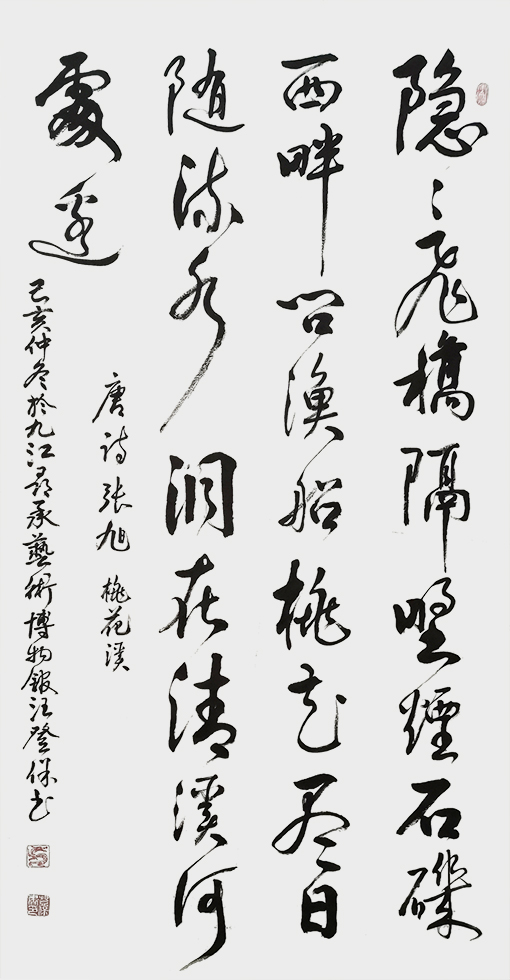 隐〻飛橋隔野煙石磯
西畔問漁船桃花尽日
随流水洞在清溪何
處邊
唐诗張旭 桃花溪
己亥仲冬於九江尋承藝術博物館汪登保书